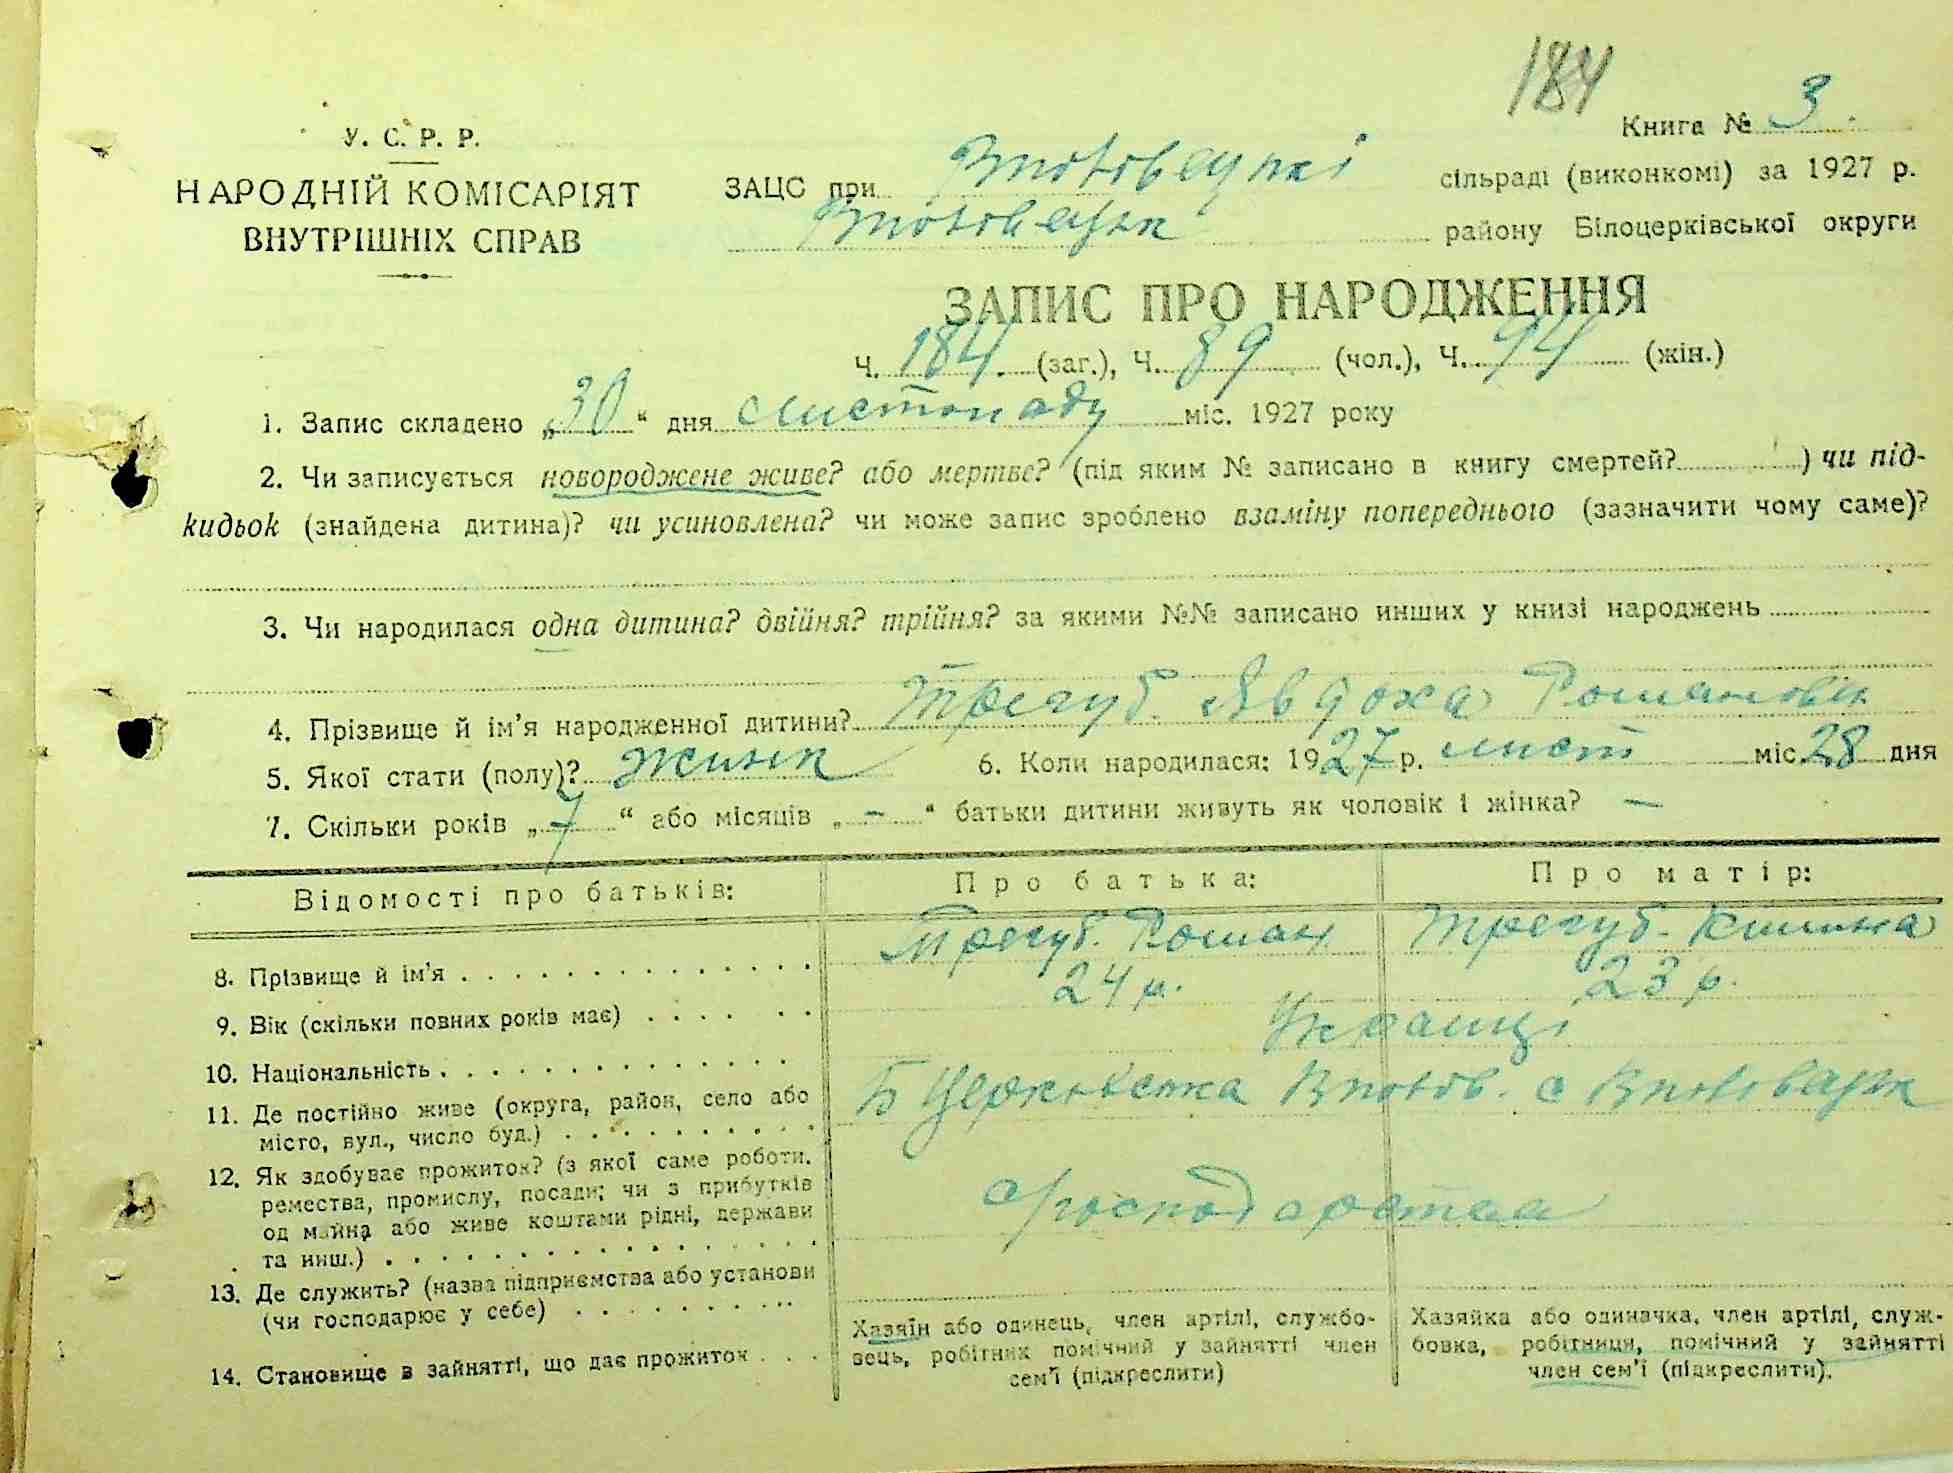 184
Книга № 3
У. С. Р. Р.
НАРОДНІЙ КОМІСАРІЯТ
ВНУТРІШНІХ СПРАВ
ЗАЦС при сільраді (виконкомі) за 1927 р.
району Білоцерківської округи
ЗАПИС ПРО НАРОДЖЕННЯ
Ч. 184 (заг.), Ч. 89 (чол.), Ч. 94 (жін.)
1. Запис складено „30“ дня листопаду міс. 1927 року
2. Чи записується новороджене живе? або мертве? (під яким № записано в книгу смертей? ) чи під-
кидьок (знайдена дитина)? чи усиновлена? чи може запис зроблено взаміну попереднього (зазначити чому саме)?
3. Чи народилася одна дитина? двійня? трійня? за якими №№ записано инших у книзі народжень
4. Прізвище й ім'я народженної дитини? Трегуб Явдоха Романовна
5. Якої стати (полу)? жинк 6. Коли народилася: 1927 р. лист міс. 28 дня
7. Скільки років „7“ або місяців „–“ батьки дитини живуть як чоловік і жінка? –
Відомості про батьків: Про батька: Про матір:
8. Прізвище й ім'я Трегуб Роман Трегуб
9. Вік (скільки повних років має) 24 р. 23 р.
10. Національність Українці
11. Де постійно живе (округа, район, село або
місто, вул., число буд.) Б Церківська
12. Як здобуває прожиток? (з якої саме роботи,
ремества, промислу, посади; чи з прибутків
од майна або живе коштами рідні, держави
та инш.) господарства
13. Де служить? (назва підприємства або установи
(чи господарює у себе)
14. Становище в зайнятті, що дає прожиток
Хазяїн або одинець, член артілі, службо-
вець, робітник помічний у зайнятті член
сем'ї (підкреслити)
Хазяйка або одиначка, член артілі, служ-
бовка, робітниця, помічний у зайнятті
член сем'ї (підкреслити).